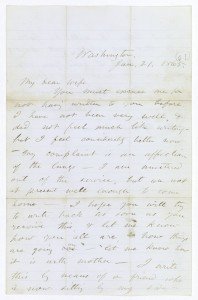 Washington,
Jan. 21. 1865.
My dear wife
You must excuse me for
not having written to you before
I have not been very well, &
did not feel much like writing
but I feel considerably better now
My complaint is an affection
of the lungs I am mustered
out of the service, but am not
at present well enough to come
home I hope you will try
to write back as soon as you
receive this & let me know
how you all are & how things
are going on let me know how
it is with mother I write
this by means of a friend who
is now sitting by my side